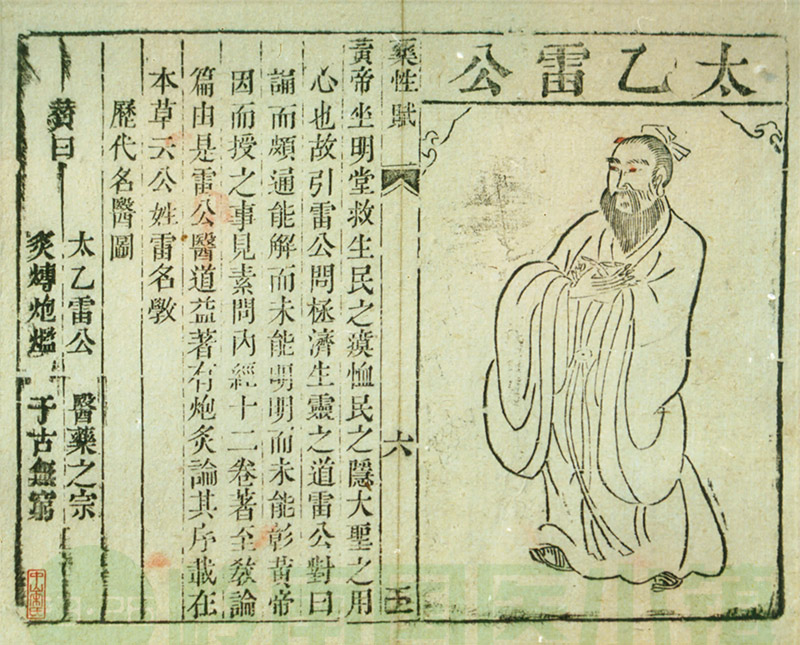 太乙雷公
藥性賦 六 五
黃帝坐明堂救生民之瘼恤民之隱大聖之用
心也故引雷公問極濟生靈之道雷公對曰
誦而頗通能解而未能明明而未能彰黃帝
因而授之事見素問內經十二卷著至敎論
篇由是雷公醫道益著有炮炙論其序載在
本草云公姓雷名斆
歷代名醫圖
贊曰
太乙雷公 醫藥之宗
炙煿炮爁 千古無窮